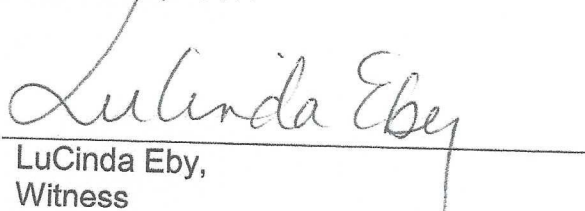 LuCinda Eby
LuCinda Eby,
Witness